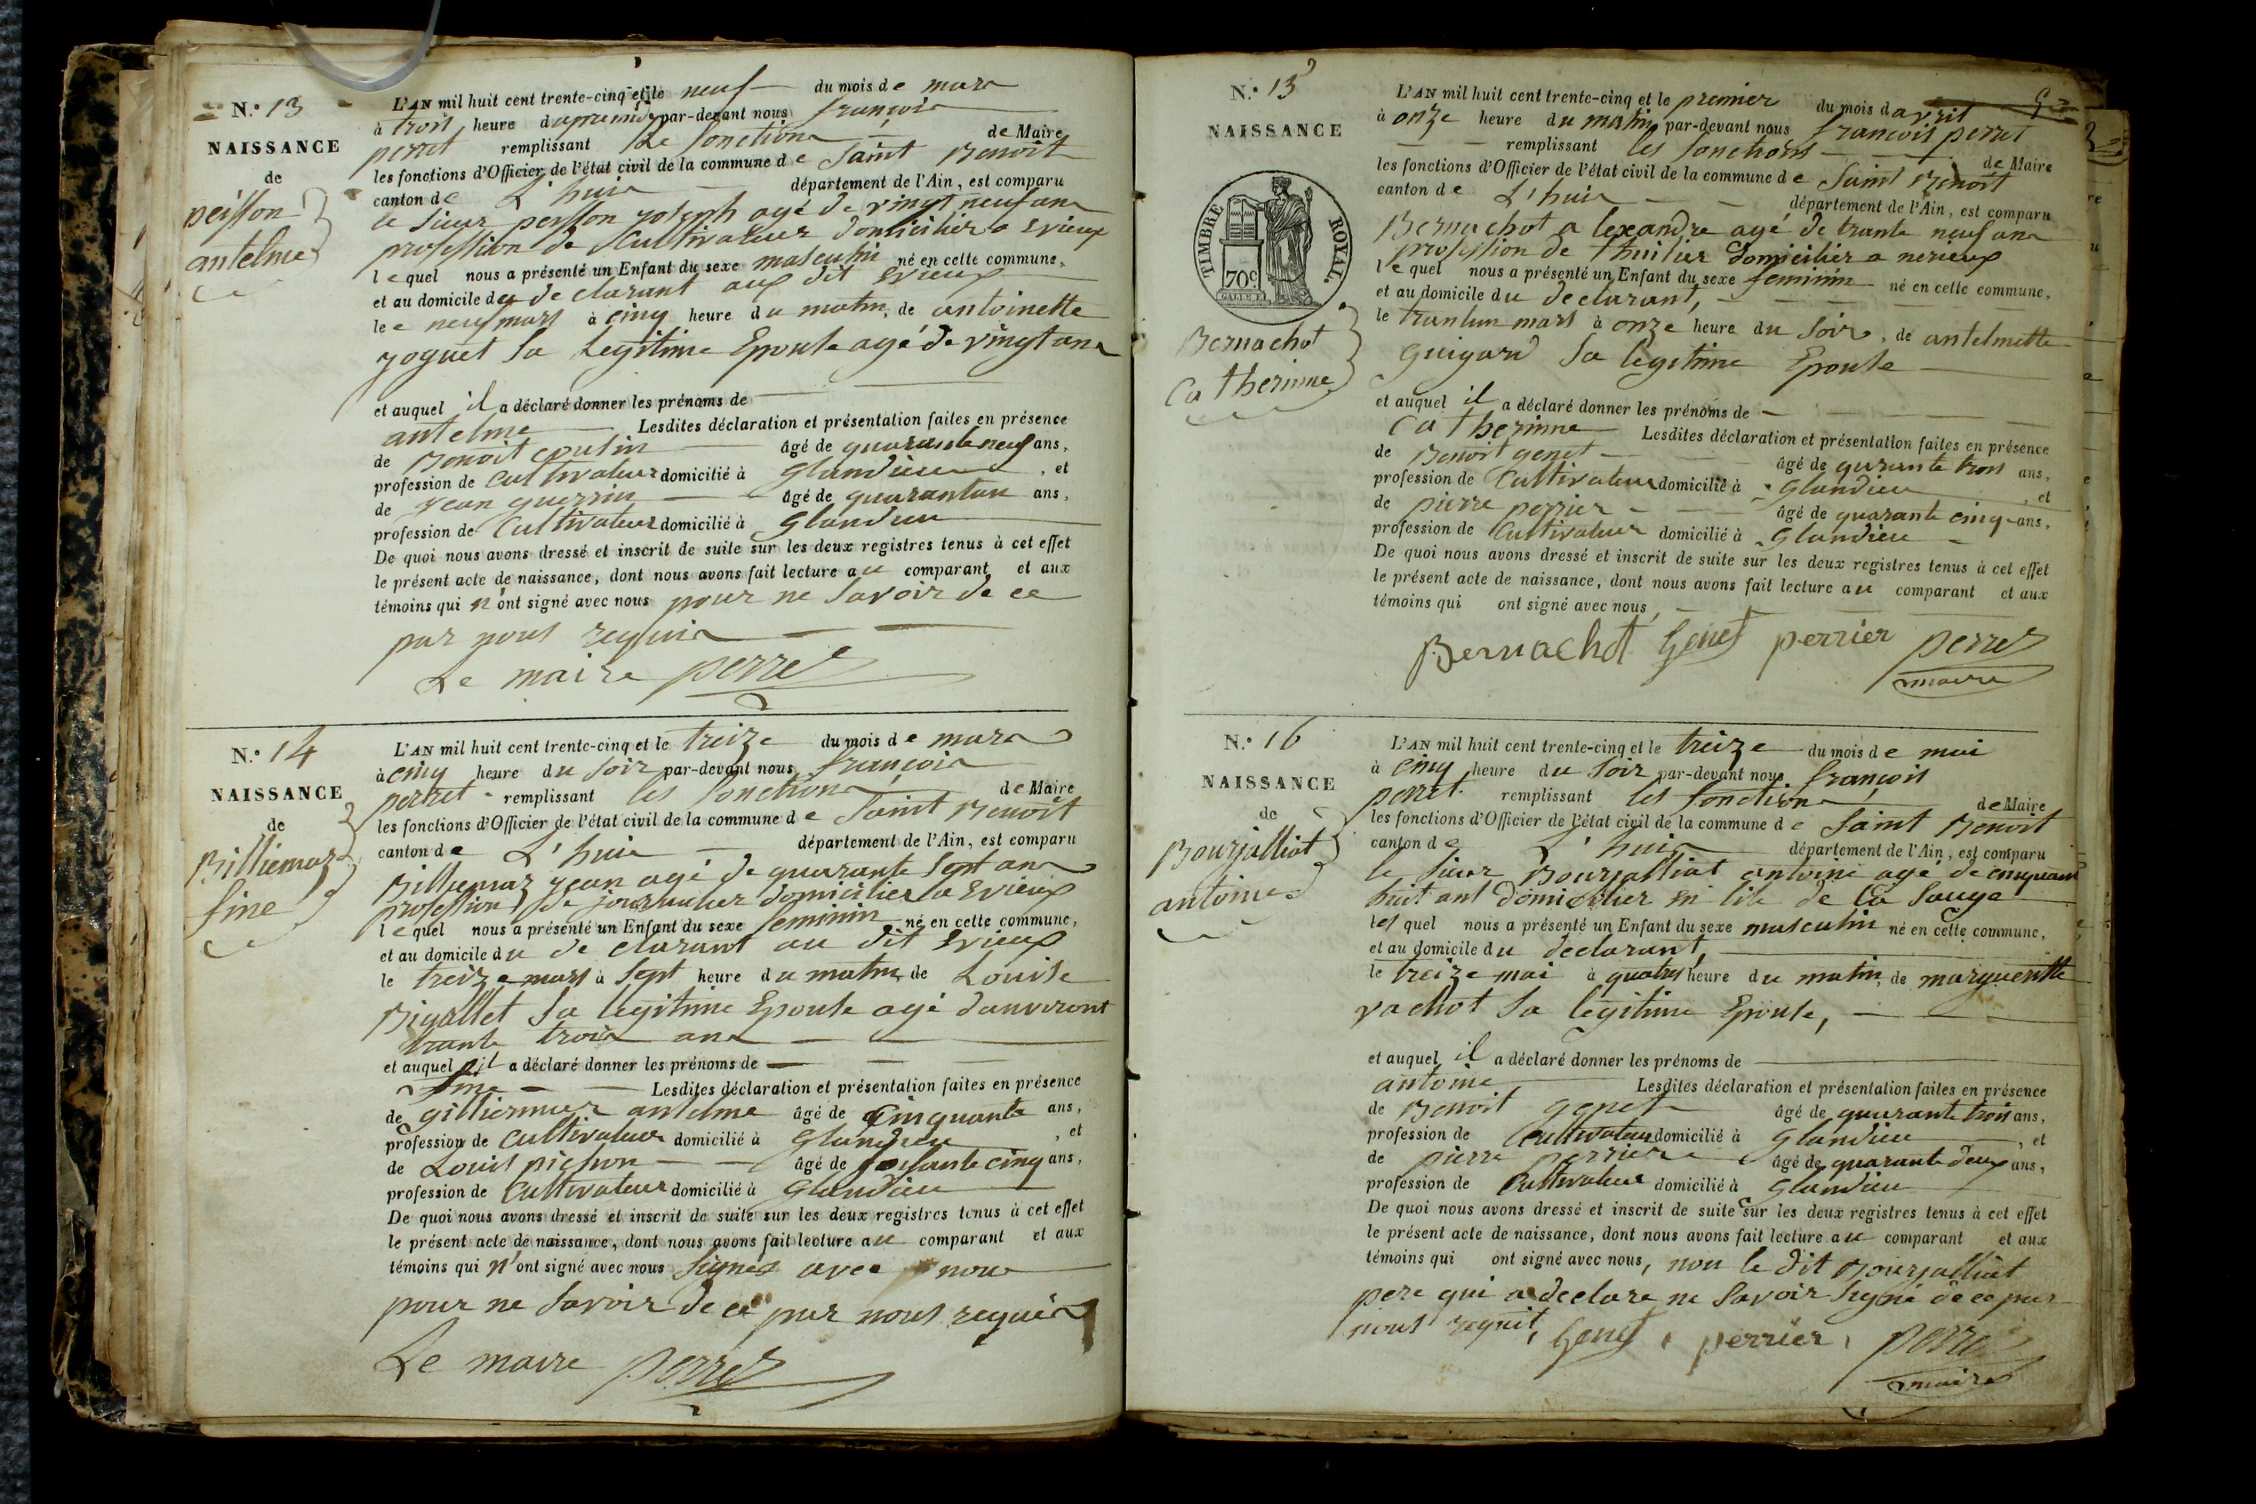 N.° 13
NAISSANCE
de
peisson
antelme
L'AN mil huit cent trente-cinq et le neuf du mois de mars
à trois heure d par-devant nous françois
perret remplissant Le fonctions de Maire
les fonctions d'Officier de l'état civil de la commune de Saint Benoit
canton de L'huis département de l'Ain, est comparu
le sieur peisson joseph agé de vingt neuf ans
profession de Cultivateur domicilier a Evieux
lequel nous a présenté un Enfant du sexe masculin né en cette commune,
et au domicile du de clarant au dit Evieux
le neuf mars à cinq heure du matin, de antoinette
yoguet sa Legitime Epouse agé de vingt ans
et auquel il a déclaré donner les prénoms de
antelme Lesdites déclaration et présentation faites en présence
de Benoit âgé de quarante neuf ans,
profession de Cultivateur domicilié à Glandieu, et
de jean guerrin âgé de quarantan ans,
profession de Cultivateur domicilié à Glandieu
De quoi nous avons dressé et inscrit de suite sur les deux registres tenus à cet effet
le présent acte de naissance, dont nous avons fait lecture au comparant et aux
témoins qui n'ont signé avec nous pour ne savoir de ce
par nous requis
Le maire perret
N.° 14
NAISSANCE
de
Billiemaz
fine
L'AN mil huit cent trente-cinq et le treize du mois de mars
à cinq heure du soir par-devant nous françois
perret remplissant les fonctions de Maire
les fonctions d'Officier de l'état civil de la commune de Saint Benoit
canton de L'huis département de l'Ain, est comparu
Billiemaz jean agé de quarante sept ans
profession de journalier domicilier a Evieux
lequel nous a présenté un Enfant du sexe feminin né en cette commune,
et au domicile du de clarant au dit Evieux
le treize mars à sept heure du matin, de Louise
Bigallet sa legitime Epouse agé danviront
trante trois ans
et auquel il a déclaré donner les prénoms de
fine Lesdites déclaration et présentation faites en présence
de antelme âgé de Cinquante ans,
profession de Cultivateur domicilié à Glandieu, et
de Louis pichon âgé de soisante cinq ans,
profession de Cultivateur domicilié à Glandieu
De quoi nous avons dressé et inscrit de suite sur les deux registres tenus à cet effet
le présent acte de naissance, dont nous avons fait lecture au comparant et aux
témoins qui n'ont signé avec nous signés avec nous
pour ne savoir de ce par nous requis
Le maire perret
N.° 15
NAISSANCE
TIMBRE ROYAL.
70c.
Bernachot
Catherinne
L'AN mil huit cent trente-cinq et le premier du mois davril
à onze heure du matin par-devant nous françois perret
remplissant les fonctions de Maire
les fonctions d'Officier de l'état civil de la commune de Saint Benoit
canton de L'huis département de l'Ain, est comparu
Bernachot alexandre agé de trante neuf ans
profession de thuilier domicilier a nerieux
lequel nous a présenté un Enfant du sexe feminin né en cette commune,
et au domicile du declarant,
le trantun mars à onze heure du soir, de antelmette
Guigard sa legitime Epouse
et auquel il a déclaré donner les prénoms de
Catherinne Lesdites déclaration et présentation faites en présence
de Benoit genet âgé de qurante trois ans,
profession de Cultivateur domicilié à Glandieu, et
de pierre perrier âgé de quarante cinq ans,
profession de Cultivateur domicilié à Glandieu
De quoi nous avons dressé et inscrit de suite sur les deux registres tenus à cet effet
le présent acte de naissance, dont nous avons fait lecture au comparant et aux
témoins qui ont signé avec nous,
Bernachot Genet perrier perret
maire
N.° 16
NAISSANCE
de
Bourjalliat
antoine
L'AN mil huit cent trente-cinq et le treize du mois de mai
à cinq heure du soir par-devant nous françois
perret remplissant les fonctions de Maire
les fonctions d'Officier de l'état civil de la commune de Saint Benoit
canton de L'huis département de l'Ain, est comparu
le sieur Bourjalliat antoine agé de cinquant
huit ans domicilier en lile de La Sauge
lequel nous a présenté un Enfant du sexe masculin né en cette commune,
et au domicile du declarant,
le treize mai à quatre heure du matin, de margueritte
vachot sa legitime Epouse,
et auquel il a déclaré donner les prénoms de
antoine Lesdites déclaration et présentation faites en présence
de Benoit genet âgé de quarante trois ans,
profession de Cultivateur domicilié à Glandieu, et
de pierre perrier âgé de quarante deux ans,
profession de Cultivateur domicilié à Glandieu
De quoi nous avons dressé et inscrit de suite sur les deux registres tenus à cet effet
le présent acte de naissance, dont nous avons fait lecture au comparant et aux
témoins qui ont signé avec nous, non le dit Bourjalliat
pere qui a declare ne savoir signé de ce par
nous requit, Genet, perrier, perret
maire